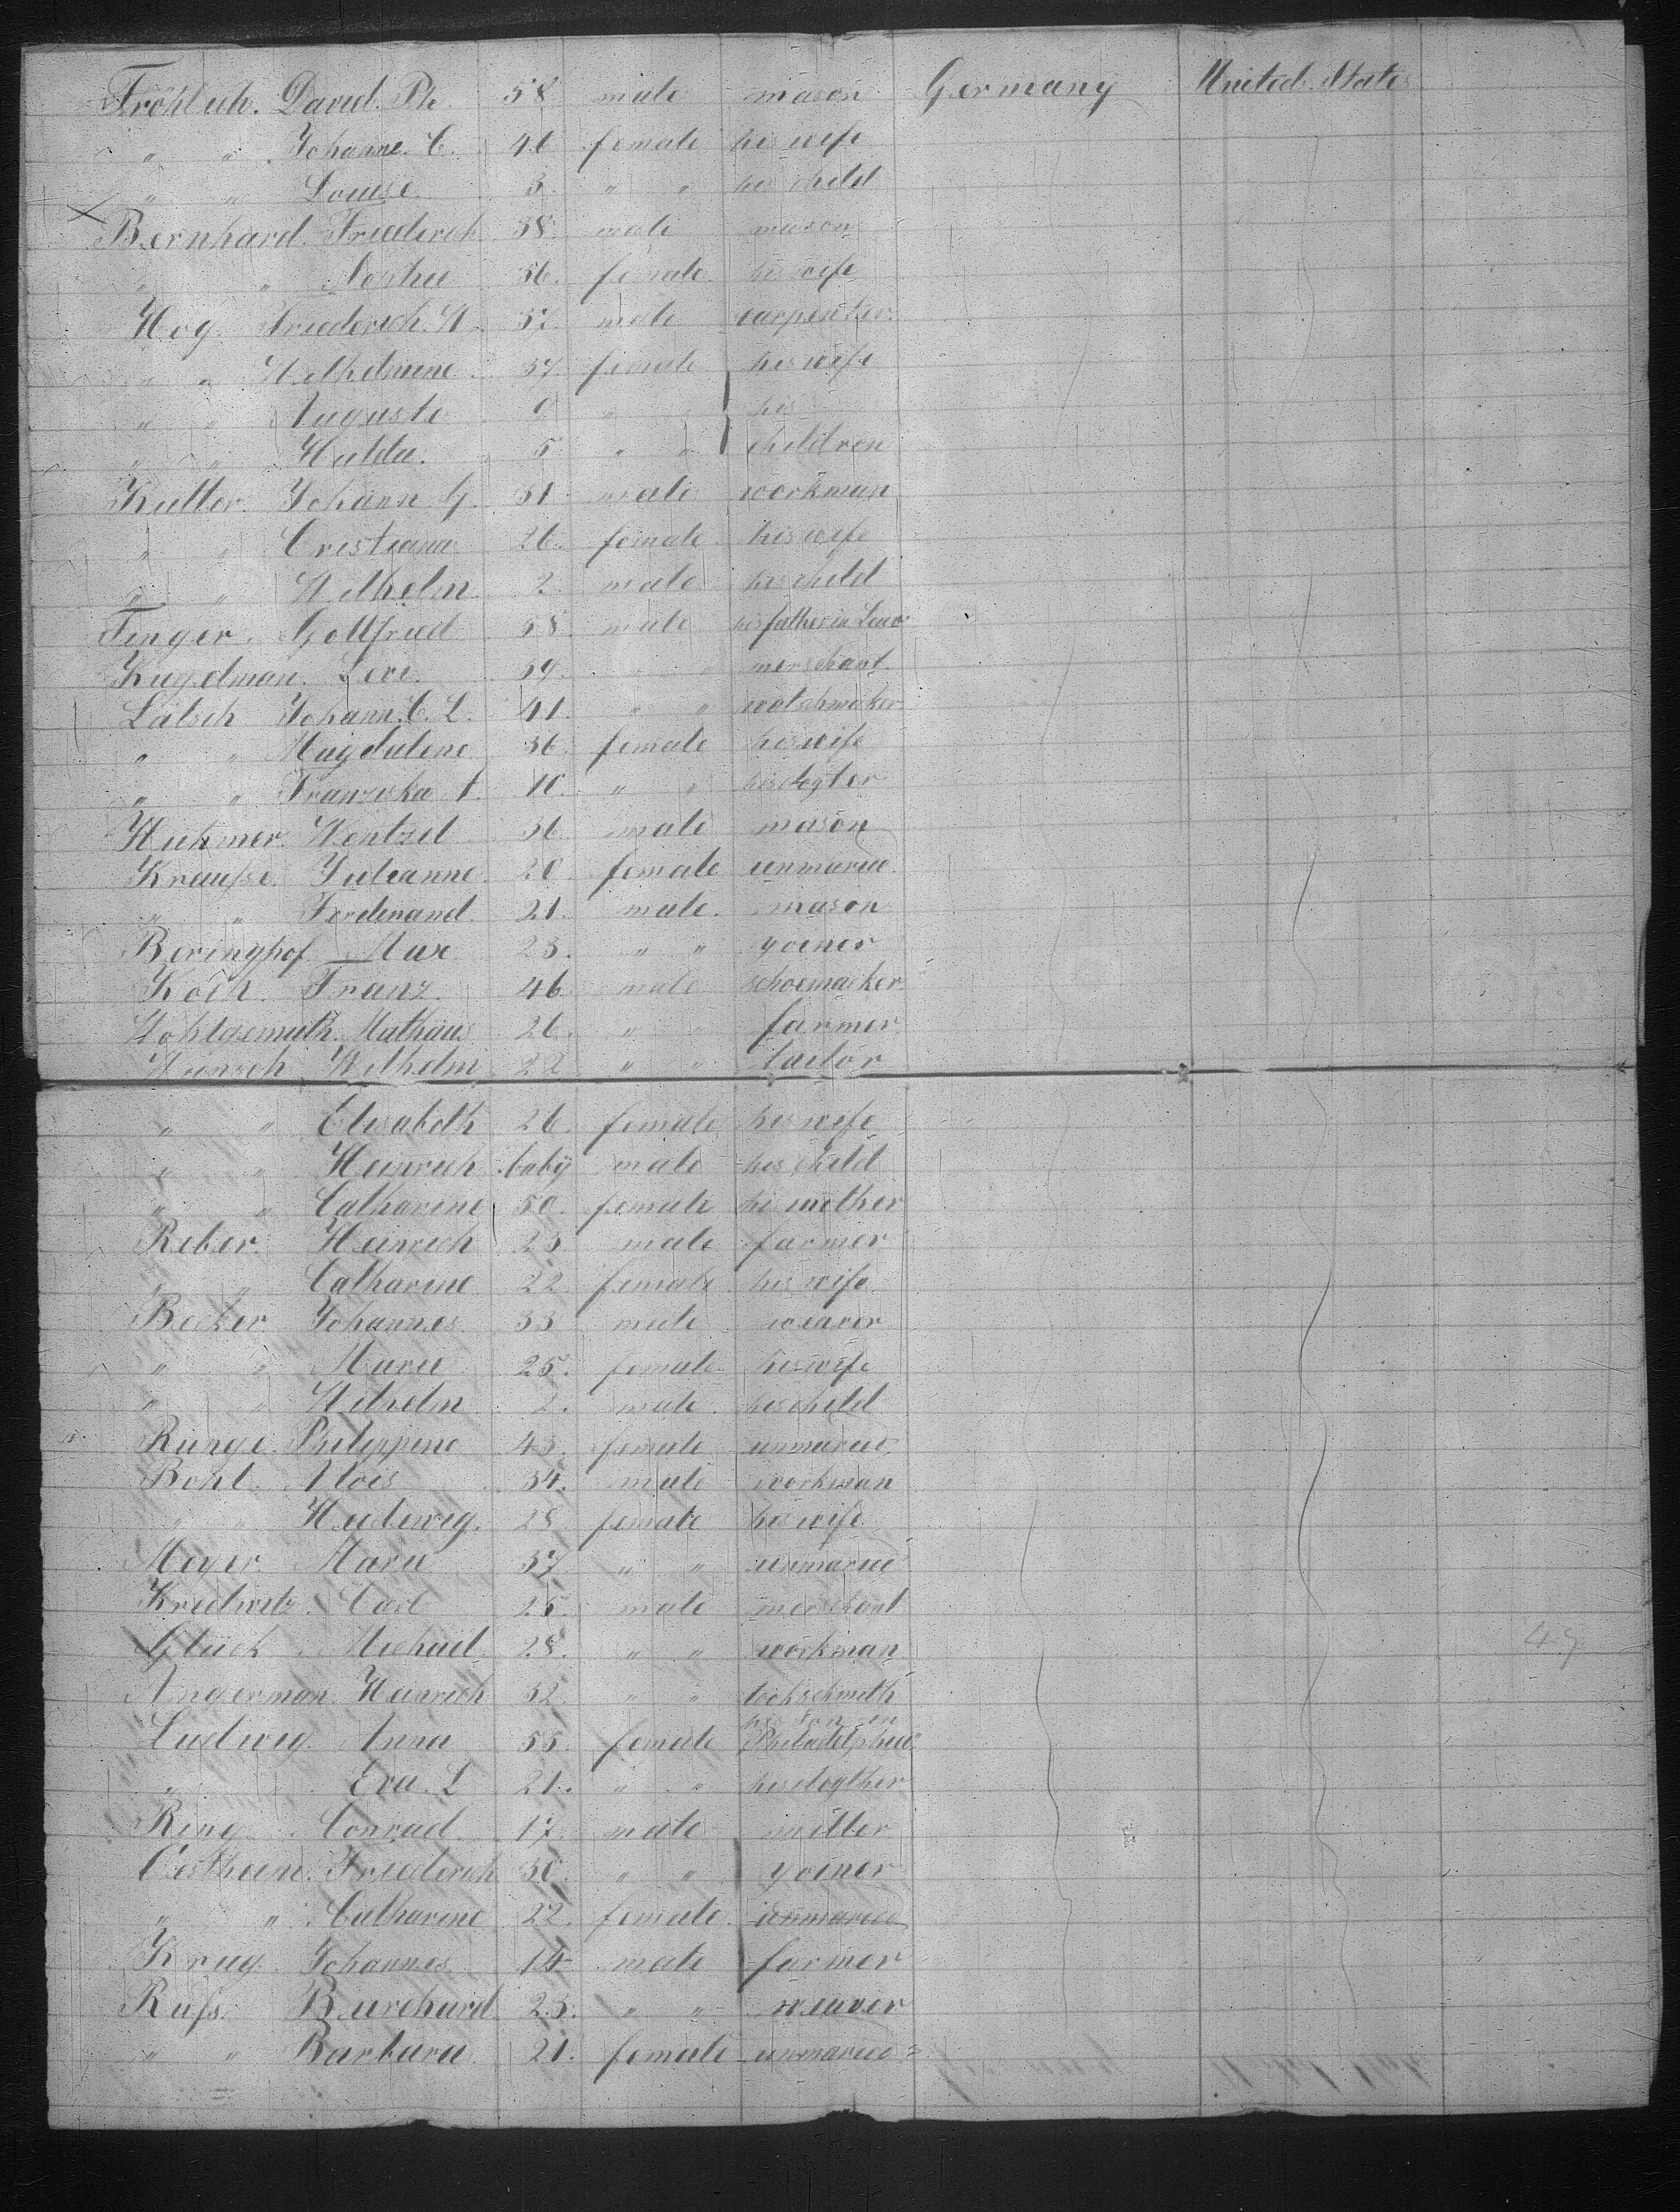 Fröhlich. David. Ph. 58 male mason Germany United States
" " Johanne. C. 46 female his wife
" " Louise. 3. " " his child
Bernhard. Friederich. 38. male mason
" " Sophie 36. female. his wife
Hog. Friederich. W. 37. male carpenter.
" " Wilhelmine 37. female his wife
" " Auguste 9 " " his
" " Hulda. 5 " " children
Kutter. Johann. G. 31. male workman
" " Cristiana 26. female. his wife
" " Wilhelm 2. male his child
Finger. Gottfried 58. male his father in Leav
Kugelman. Levi. 59. " " merschant.
Lätsch Johann. C. L. 41. " " watschmaker
" " Magdalene 36. female his wife
" " Franziska 10. " " his dogter
Wentzel 36 male mason
Krauſse. Julianne. 20. female unmaried
" " Ferdinand. 21. male. mason
Beringhof. Max 23. " " yoiner
Koch. Franz. 46. male schoemacker
Wohlgemuth. Mathäus 26. " " farmer.
Wunsch Wilhelm 22 " " tailor
" " Elisabeth 26. female his wife
" " Heinrich baby male his child
" " Catharine 50. female his mother
Reber. Heinrich 23. male farmer
" " Catharine 22. female his wife.
Becker Johannes 33 male weaver
" " Marie 25. female. his wife
" " Wilhelm 2. male. his child
Runge. Philippine 43. female unmaried.
Bohl. Alois 34. male workman
" " Hedewig. 28. female his wife
Meyer. Marie 37 " " unmaried
Carl 25. male merschant
Glück. Michael 28. " " workman 49
Angerman. Heinrich 32 " " lockschmith
his son in
Ludwig. Anna 55. female Philadelphia
" Eva. L 21. " " his dogther
Ring. Conrad. 17. male miller
Friederich 30. " " yoiner
" " Catharine 22. female. unmaried
Krug. Johannes 14 male farmer
Ruſs. Burchard. 23. " " weaver
" " Barbara 21. female unmaried